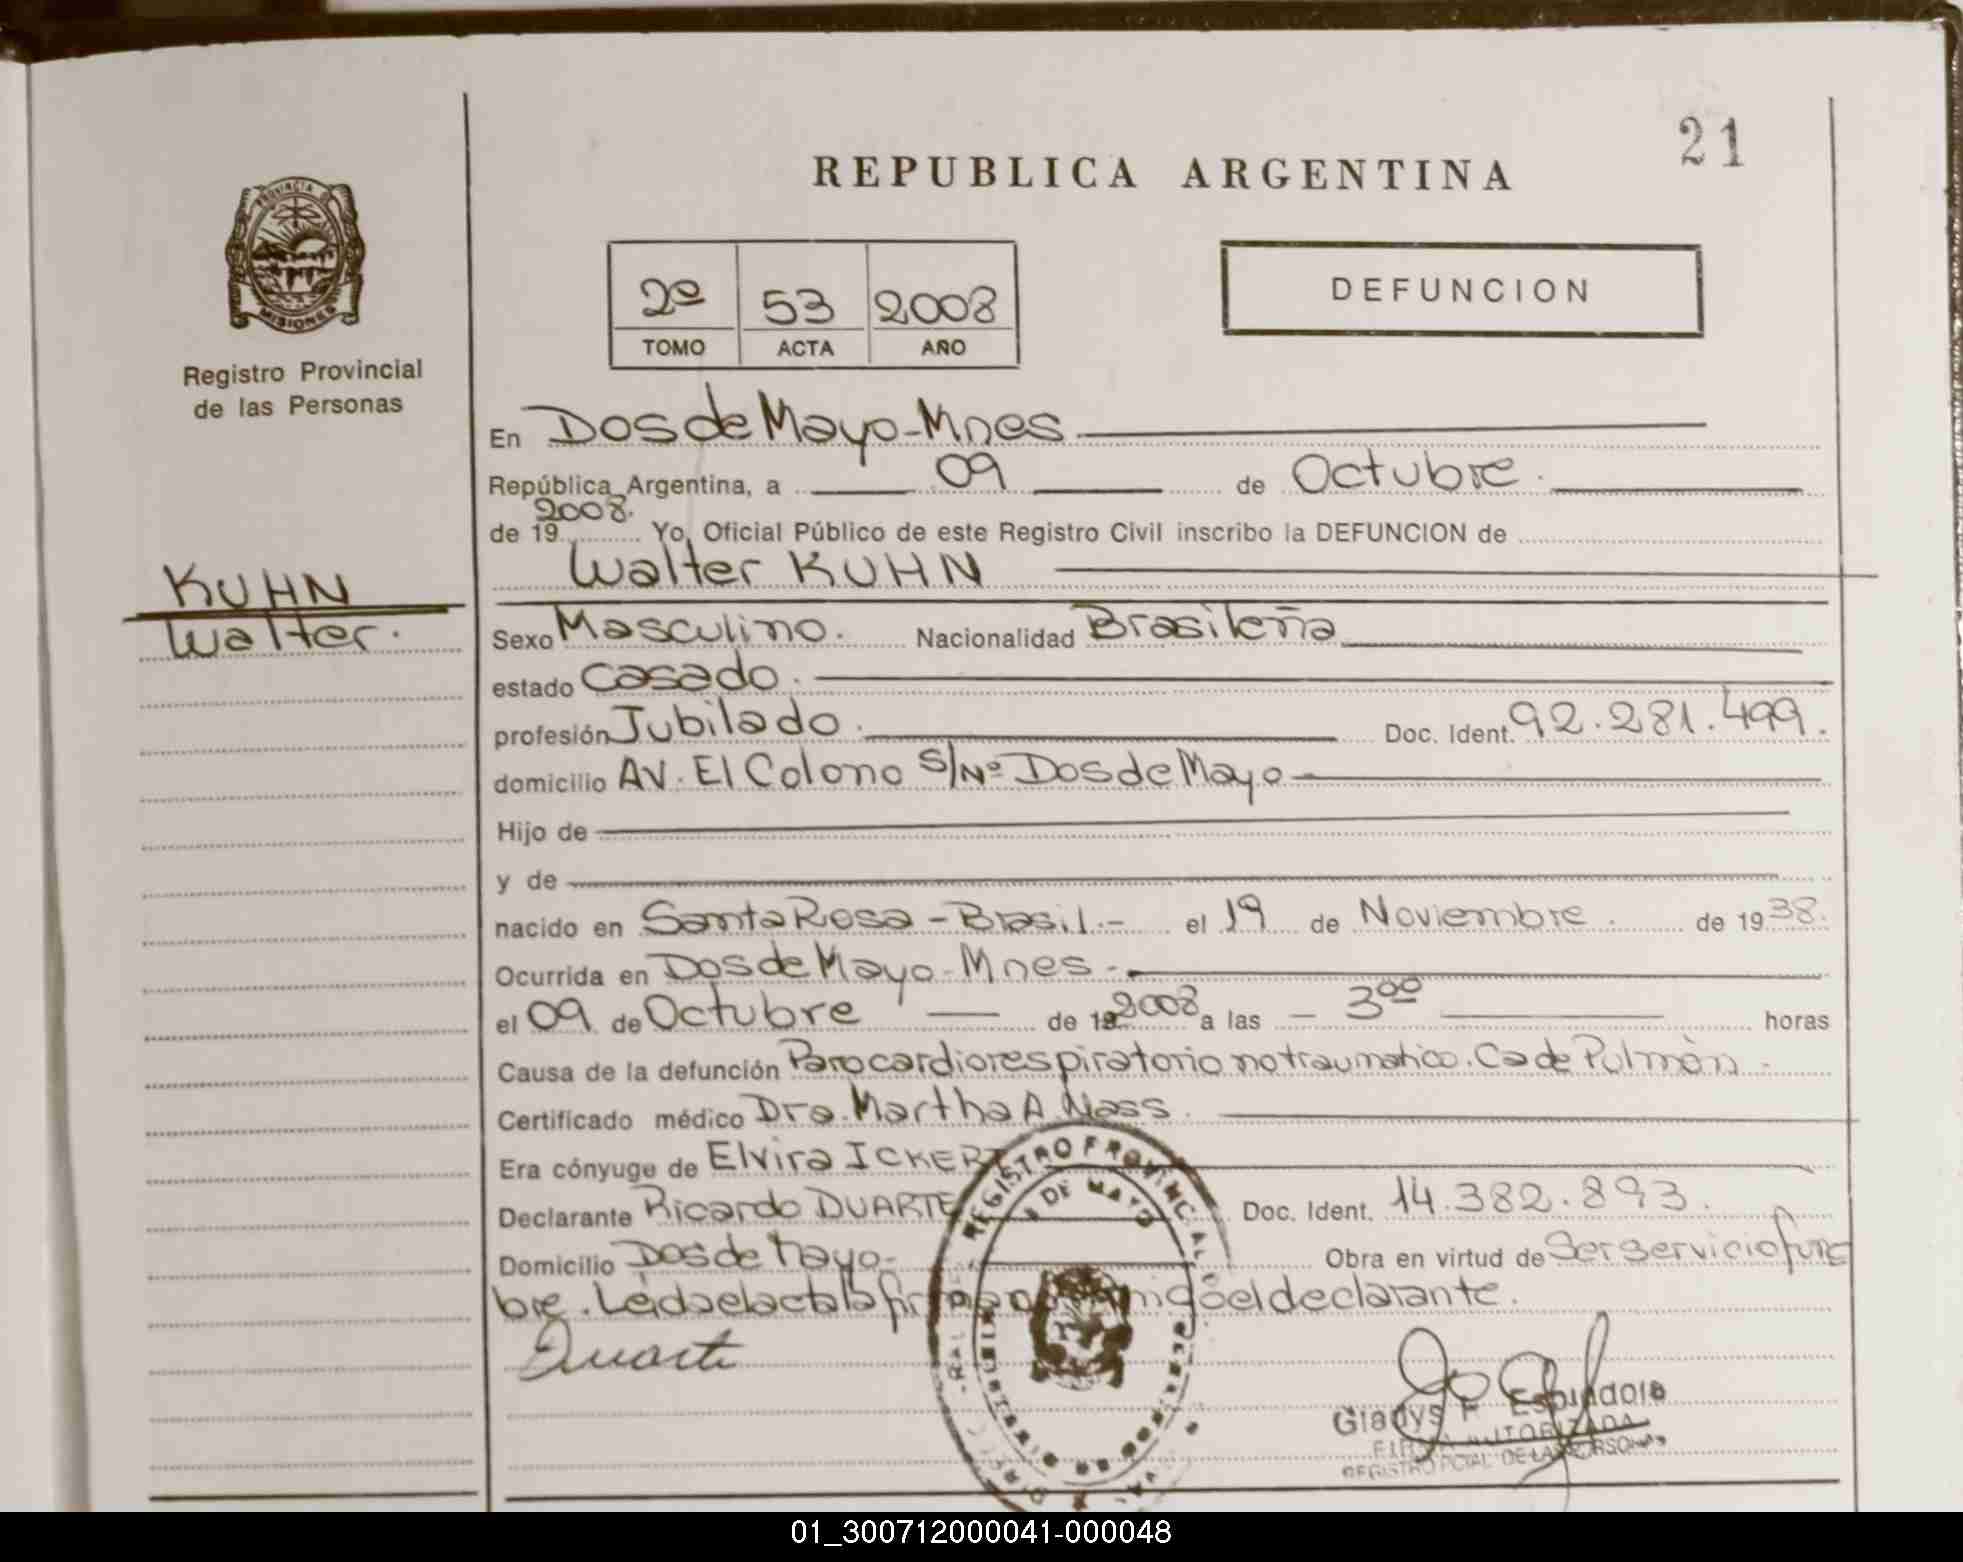 21
REPUBLICA ARGENTINA
PROVINCIA DE
MISIONES
Registro Provincial
de las Personas
2º 53 2008
TOMO ACTA AÑO
DEFUNCION
En Dos de Mayo-Mnes
República Argentina, a 09 de Octubre.
2008.
de 19 Yo, Oficial Público de este Registro Civil inscribo la DEFUNCION de
Walter KUHN
KUHN
Walter.
Sexo Masculino. Nacionalidad Brasileña
estado Casado.
profesión Jubilado. Doc. Ident. 92.281.499.
domicilio AV. El Colono S/Nº Dos de Mayo
Hijo de
y de
nacido en Santa Rosa - Brasil.- el 19 de Noviembre. de 1938.
Ocurrida en Dos de Mayo-Mnes-
el 09 de Octubre de 19 2008 a las - 3ºº horas
Causa de la defunción Parocardiorespiratorio no traumatico. Ca de Pulmòn
Certificado médico Dra. Martha A. Nass.
Era cónyuge de Elvira ICKERT
Declarante Ricardo DUARTE Doc. Ident. 14.382.893.
Domicilio Dos de Mayo- Obra en virtud de Ser servicio fune
bre. Leida el acta la firma conmigo el declarante.
Duarte
REGISTRO PROVINCIAL DE
DE MAYO
Gladys F Espindola
FIRMA AUTORIZADA
REGISTRO PCIAL DE LAS PERSONAS
01_300712000041-000048